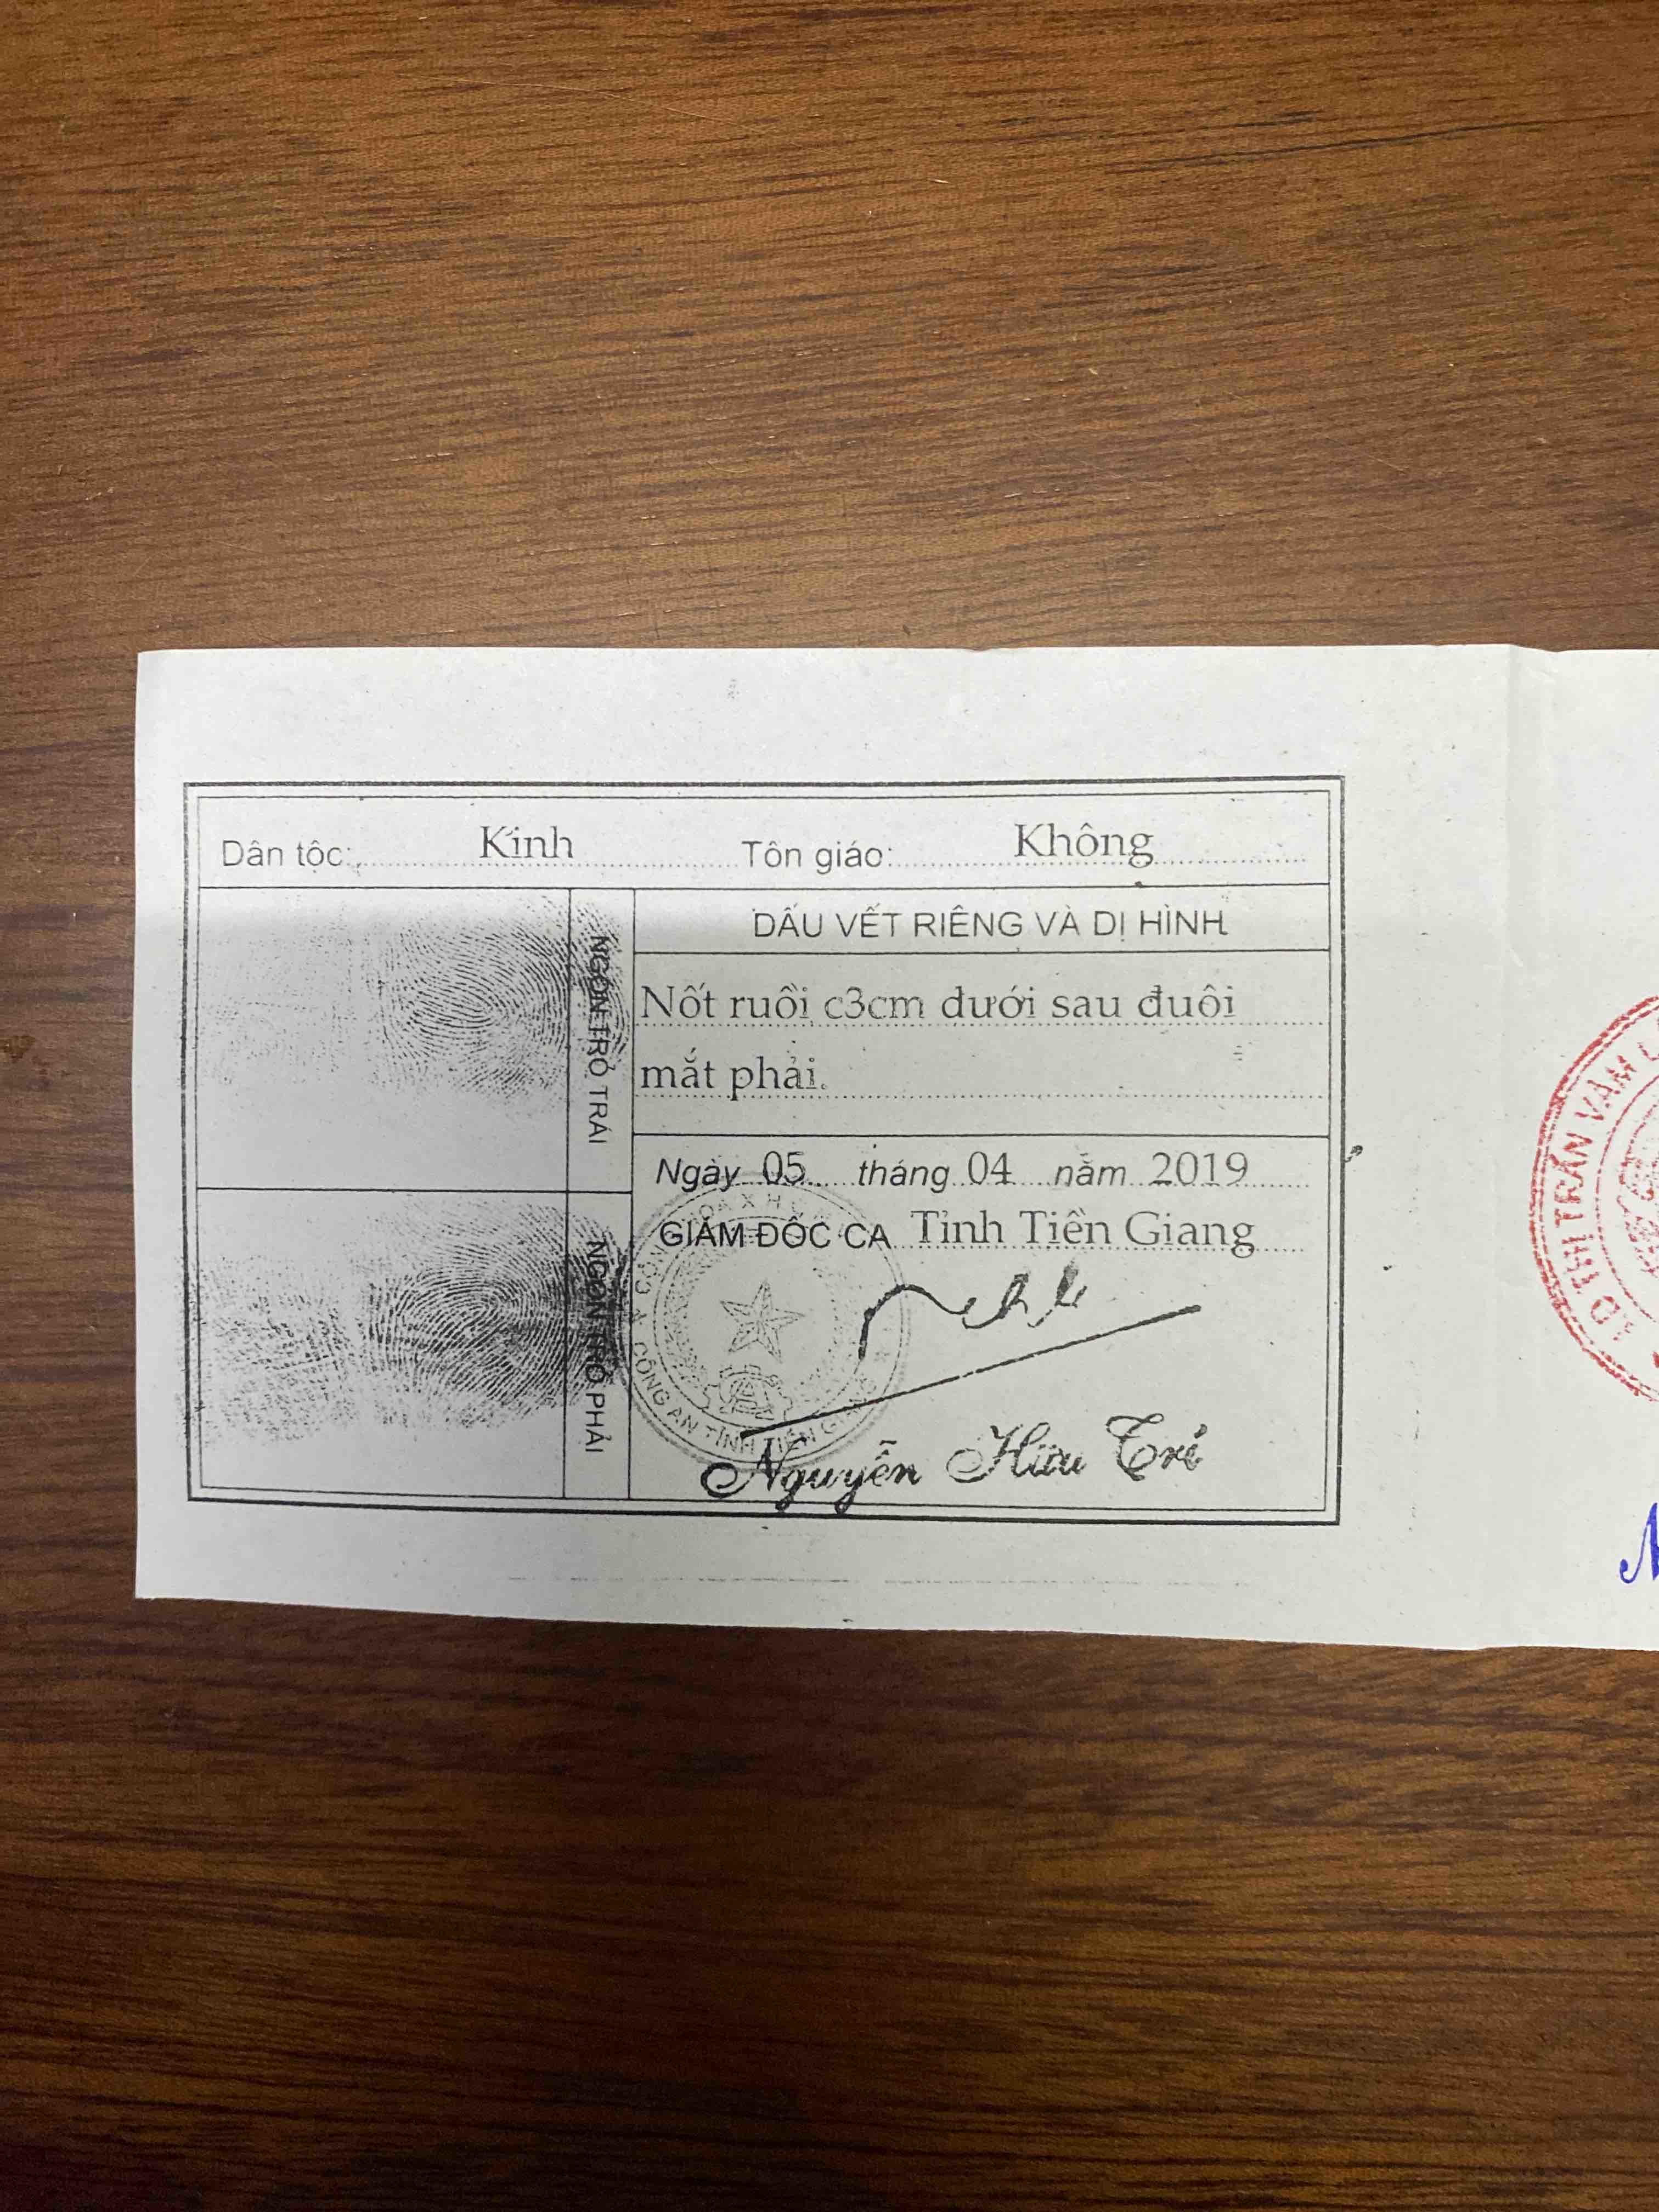 Dân tộc: Kinh Tôn giáo: Không
NGÓN TRỎ TRÁI
DẤU VẾT RIÊNG VÀ DỊ HÌNH
Nốt ruồi c3cm dưới sau đuôi
mắt phải.
Ngày 05 tháng 04 năm 2019
GIÁM ĐỐC CA Tỉnh Tiền Giang
NGÓN TRỎ PHẢI
CÔNG AN TỈNH TIỀN GIANG
Nguyễn Hữu Trí
THỊ TRẤN VÀM